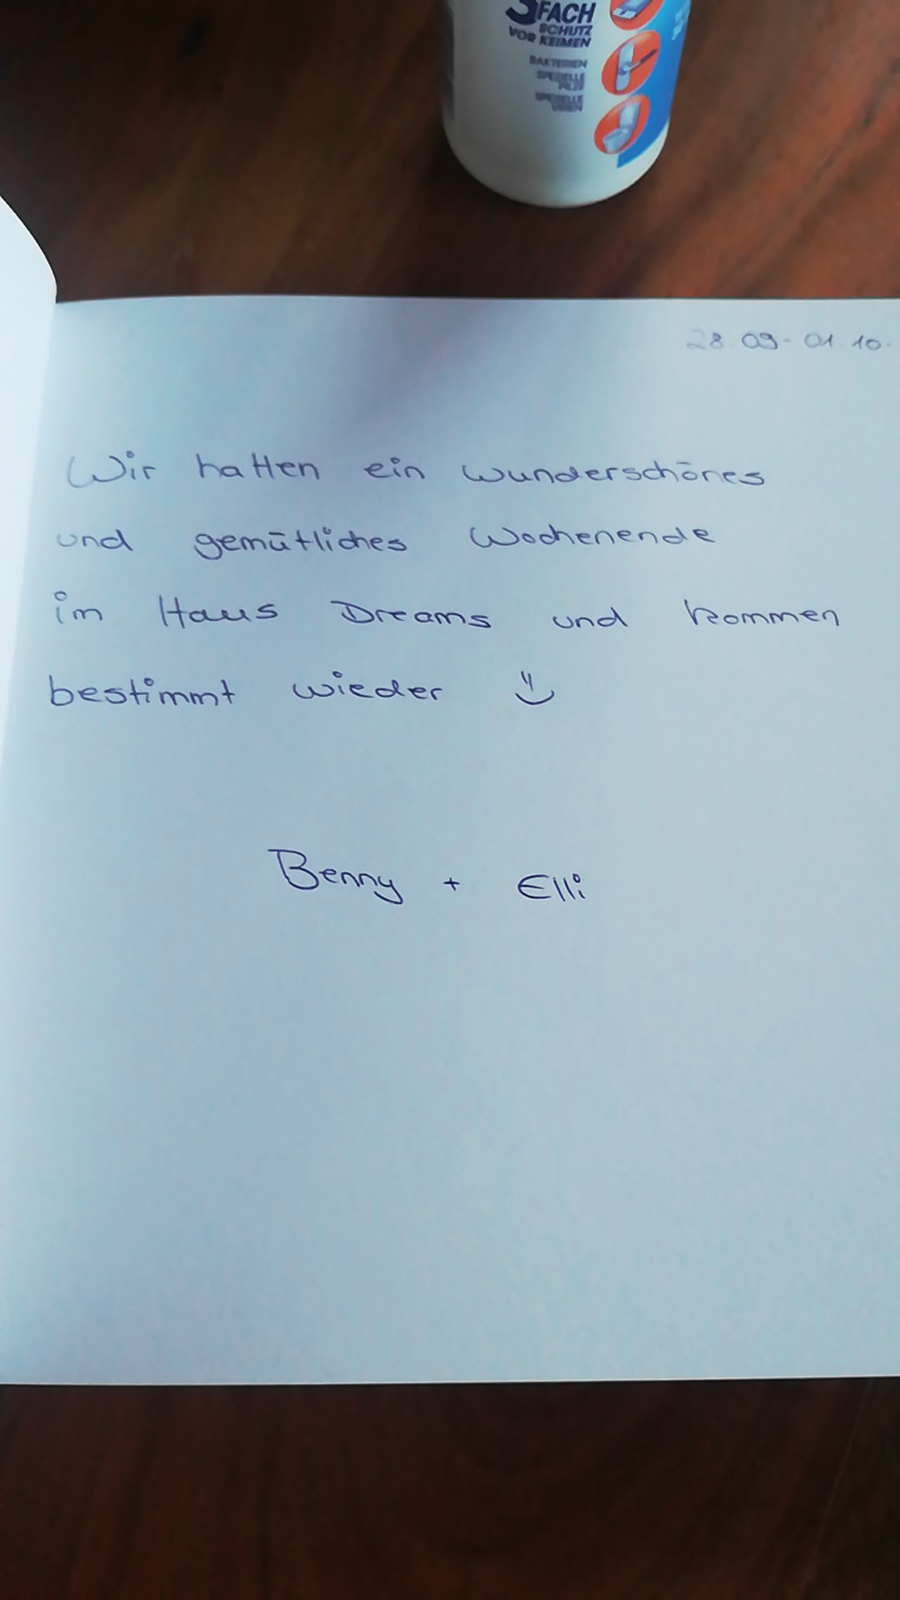 3FACH
SCHUTZ
VOR KEIMEN
BAKTERIEN
SPEZIELLE
PILZE
SPEZIELLE
VIREN
28.09-01.10.
Wir hatten ein wunderschönes
und gemütliches Wochenende
im Haus Dreams und kommen
bestimmt wieder
Benny + Elli